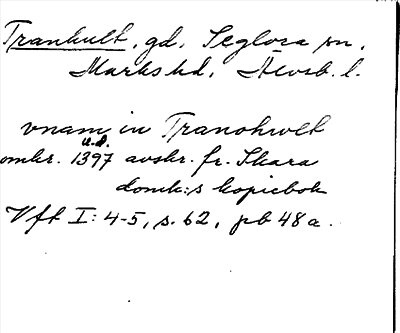 Trankult, gd, Seglora sn,
Marks hd, Älvsb. l.
vnam in Tranohwlt
u.d.
omkr. 1397 avskr. fr. Skara
domk:s kopiebok
Vft I: 4-5, s. 62, pb 48 a.